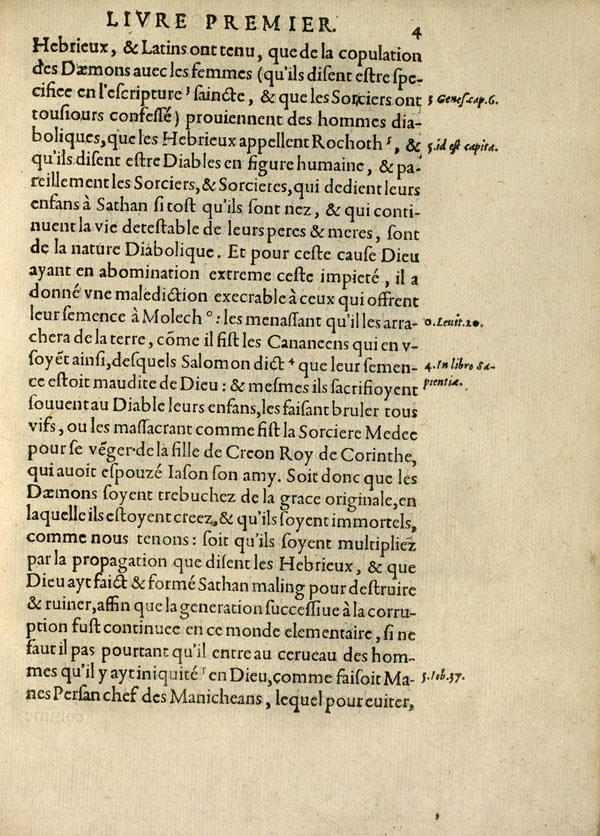 LIVRE PREMIER. 4
Hebrieux, & Latins ont tenu, que de la copulation
des Dæmons auec les femmes (qu'ils disent estre spe-
cifiee en l'escripture ³ saincte, & que les Sorciers ont
3 Genes. cap. 6.
tousiours confessé) prouiennent des hommes dia-
boliques, que les Hebrieux appellent Rochoth ⁵, &
5. id est capita.
qu'ils disent estre Diables en figure humaine, & pa-
reillement les Sorciers, & Sorcieres, qui dedient leurs
enfans à Sathan si tost qu'ils sont nez, & qui conti-
nuent la vie detestable de leurs peres & meres, sont
de la nature Diabolique. Et pour ceste cause Dieu
ayant en abomination extreme ceste impieté, il a
donné vne malediction execrable à ceux qui offrent
leur semence à Molech ⁰ : les menassant qu'il les arra-
0. Leuit. 20.
chera de la terre, cōme il fist les Cananeens qui en v-
soyēt ainsi, desquels Salomon dict ⁴ que leur semen-
4. In libro Sa-
ce estoit maudite de Dieu : & mesmes ils sacrifioyent
pientiæ.
souuent au Diable leurs enfans, les faisant bruler tous
vifs, ou les massacrant comme fist la Sorciere Medee
pour se vēger de la fille de Creon Roy de Corinthe,
qui auoit espouzé Iason son amy. Soit donc que les
Dæmons soyent trebuchez de la grace originale, en
laquelle ils estoyent creez, & qu'ils soyent immortels,
comme nous tenons : soit qu'ils soyent multipliez
par la propagation que disent les Hebrieux, & que
Dieu ayt faict & formé Sathan maling pour destruire
& ruiner, affin que la generation successiue à la corru-
ption fust continuee en ce monde elementaire, si ne
faut il pas pourtant qu'il entre au cerueau des hom-
mes qu'il y ayt iniquité ⁵ en Dieu, comme faisoit Ma-
5. Iob. 37.
nes Persan chef des Manicheans, lequel pour euiter,